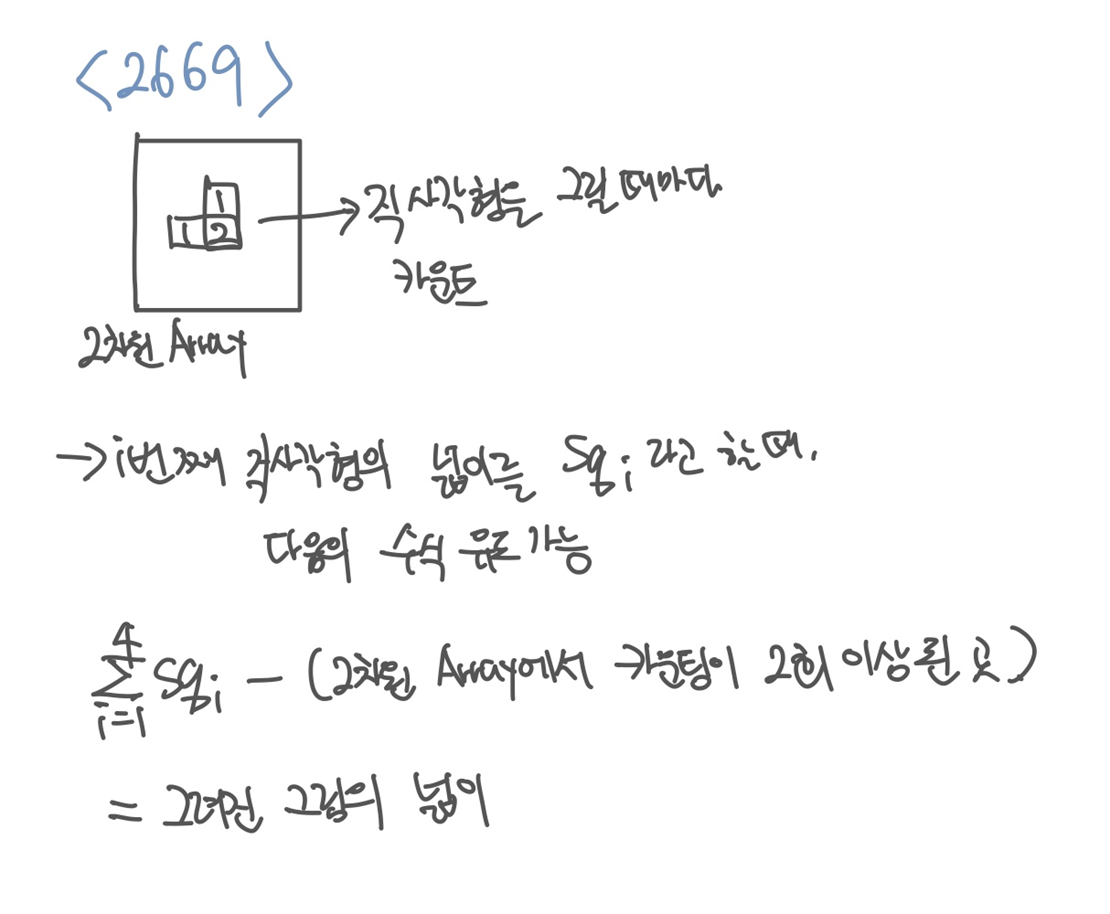 <2669>
1
1 2
→ 직사각형을 그릴 때마다
카운트
2차원 Array
→ i번째 직사각형의 넓이를 Sqi 라고 할 때,
다음의 수식 유도 가능
4
∑ Sqi - (2차원 Array에서 카운팅이 2회 이상 된 곳)
i=1
= 그려진 그림의 넓이